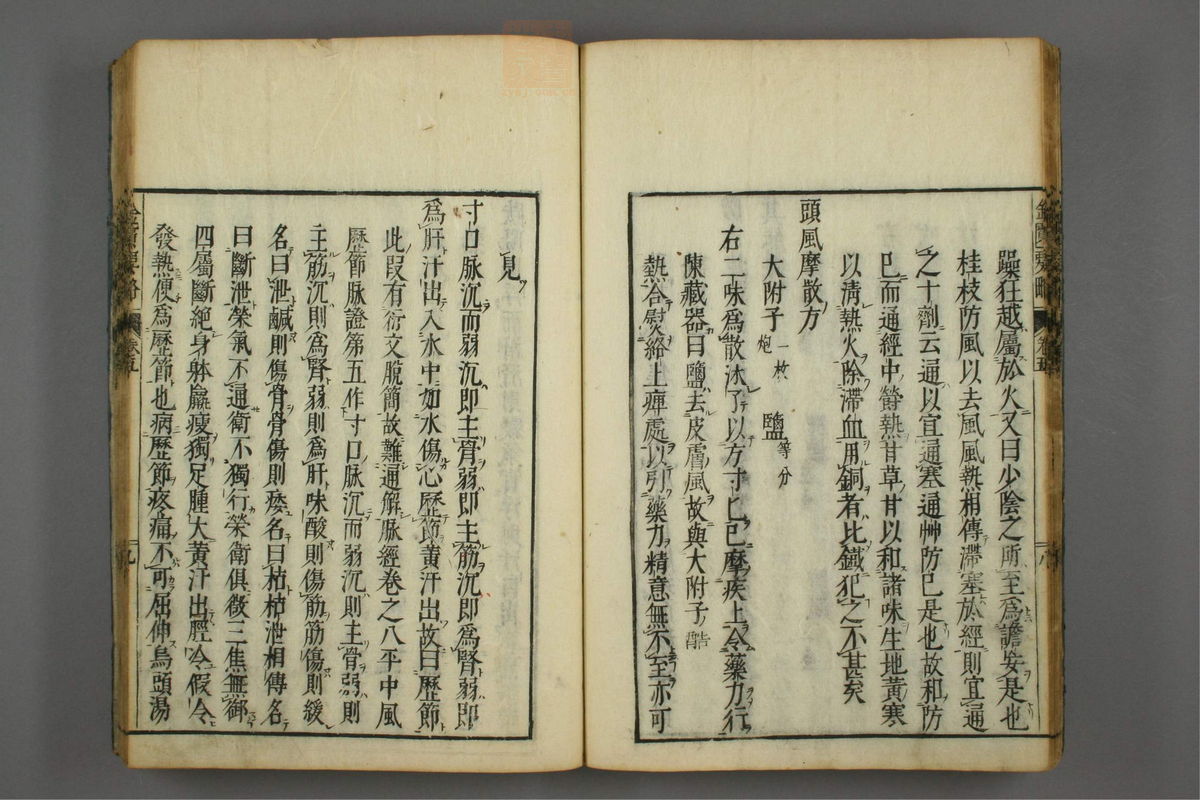 躁狂越屬於火又曰少陰之所至為譫妄是也
桂枝防風以去風風熱相傳滯塞於經則宜通
之十劑云通以宜通塞通艸防巳是也故和防
巳而通經中欝熱甘草甘以和諸味生地黃寒
以淸熱火除滯血用銅者比鐵犯之不甚矣
頭風摩散方
大附子一枚炮 鹽等分
右二味為散沐了以方寸匕巳摩疾上令藥力行
陳藏器曰鹽去皮膚風故與大附子酷
熱合熨絡上痺處以引藥力精意無不至亦可
八
見
寸口脉沉而弱沉即主骨弱即主筋沉即為腎弱即
為肝汗出入水中如水傷心歷節黃汗出故曰歷節
此段有衍文脫簡故難通解脉經卷之八平中風
歷節脉證第五作寸口脉沉而弱沉則主骨弱則
主筋沉則為腎弱則為肝味酸則傷筋筋傷則緩
名曰泄鹹則傷骨骨傷則痿名曰枯枯泄相傳名
曰斷泄榮氣不通衛不獨行榮衛俱微三焦無御
四屬斷絕身躰羸瘦獨足腫大黃汗出脛冷假令
發熱便為歷節也病歷節疼痛不可屈伸烏頭湯
九